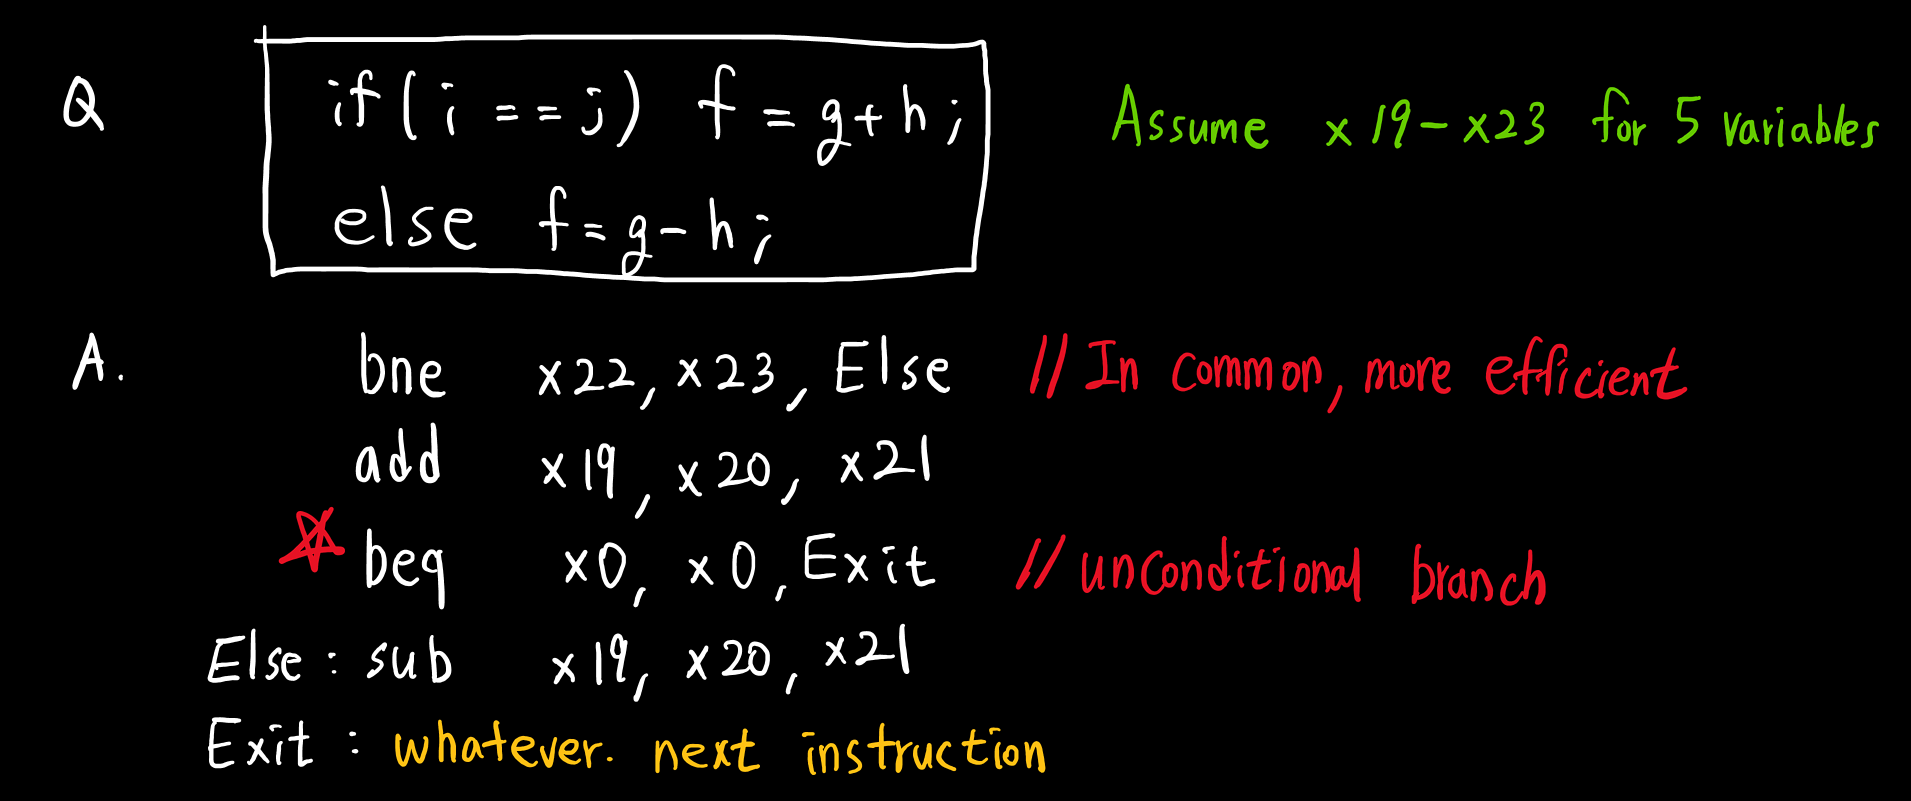 Q if(i == j) f = g+h; Assume x19-x23 for 5 variables
else f=g-h;
A. bne x22, x23, Else // In common, more efficient
add x19, x20, x21
☆ beq x0, x0, Exit // unconditional branch
Else : sub x19, x20, x21
Exit : whatever. next instruction